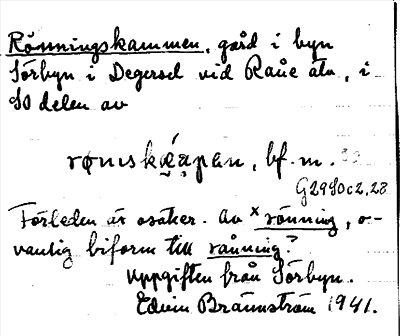 Rönningskammen, gård i byn
Sörbyn i Degersel vid Råne älv, i
SO delen av
G2980c2,28
Förleden är osäker. Av × rönning, o-
vanlig biform till rånning?
Uppgiften från Sörbyn.
Edvin Brännström 1941.